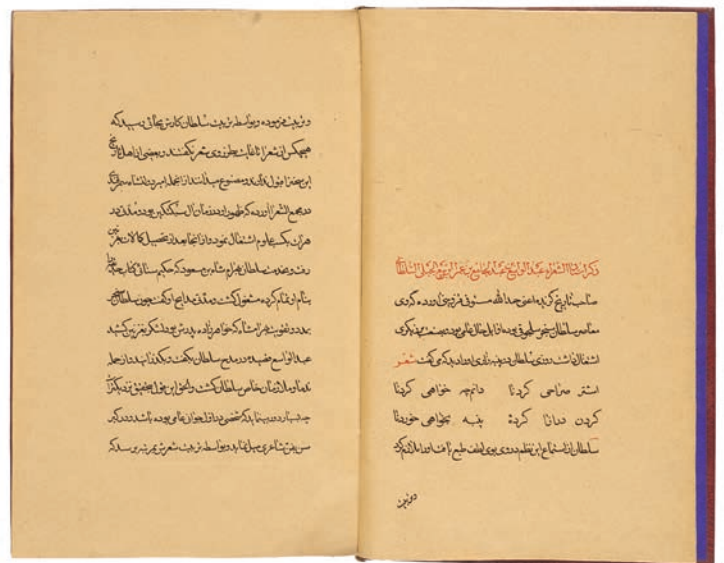 ذکر استاد الشعراء عبد الواسع جبلی
صاحب تاریخ گزیده اعنی حمد الله مستوفی قزوینی آورده که وی
معاصر سلطان سنجر سلجوقی بوده در اول حال عامی بود به صفت برزیگری
اشتغال داشت روزی سلطان دید که می گفت شعر
اشتر صراحی گردنا دانم چه خواهی کردنا
گردن درازا کردهٔ پنبه بخواهی خوردنا
سلطان از استماع این نظم در وی بوی لطف طبع یافت او را ملازم کرد
و تربیت
و تربیت فرموده و بواسطه تربیت سلطان کارش بجائی رسید که
هیچکس از شعرا تا غایت بطرز وی شعر نگفتند و بعضی از اهل تاریخ
این سخن را قول مصنوع میدانند از انجمله امیر دولتشاه سمرقندی
در مجمع الشعرا آورده که ظهور او در زمان آل سبکتکین بود و مدتی در
هرات بکسب علوم اشتغال نمود و از آنجا بعد از تحصیل کمالات بغزنین
رفت و بخدمت سلطان بهرام شاه بن مسعود که حکیم سنائی کتاب حدیقه
بنام او تمام کرده مشغول گشت و مدتی مدایح او گفت چون سلطان سنجر
بمدد و تقویت بهرام شاه که خواهرزاده پدرش بود لشکر بغزنین کشید
عبد الواسع قصیده در مدح سلطان بگفت و بگذرانید و از جمله
ندما و ملازمان خاص سلطان گشت و الحق این قول بتحقیق نزدیکتر
چه بسیار دور مینماید که شخصی در اول جوان عامی بوده باشد و در کبر
سن بفن شاعری میل نماید و بواسطه تربیت شعرش بمرتبه برسد که